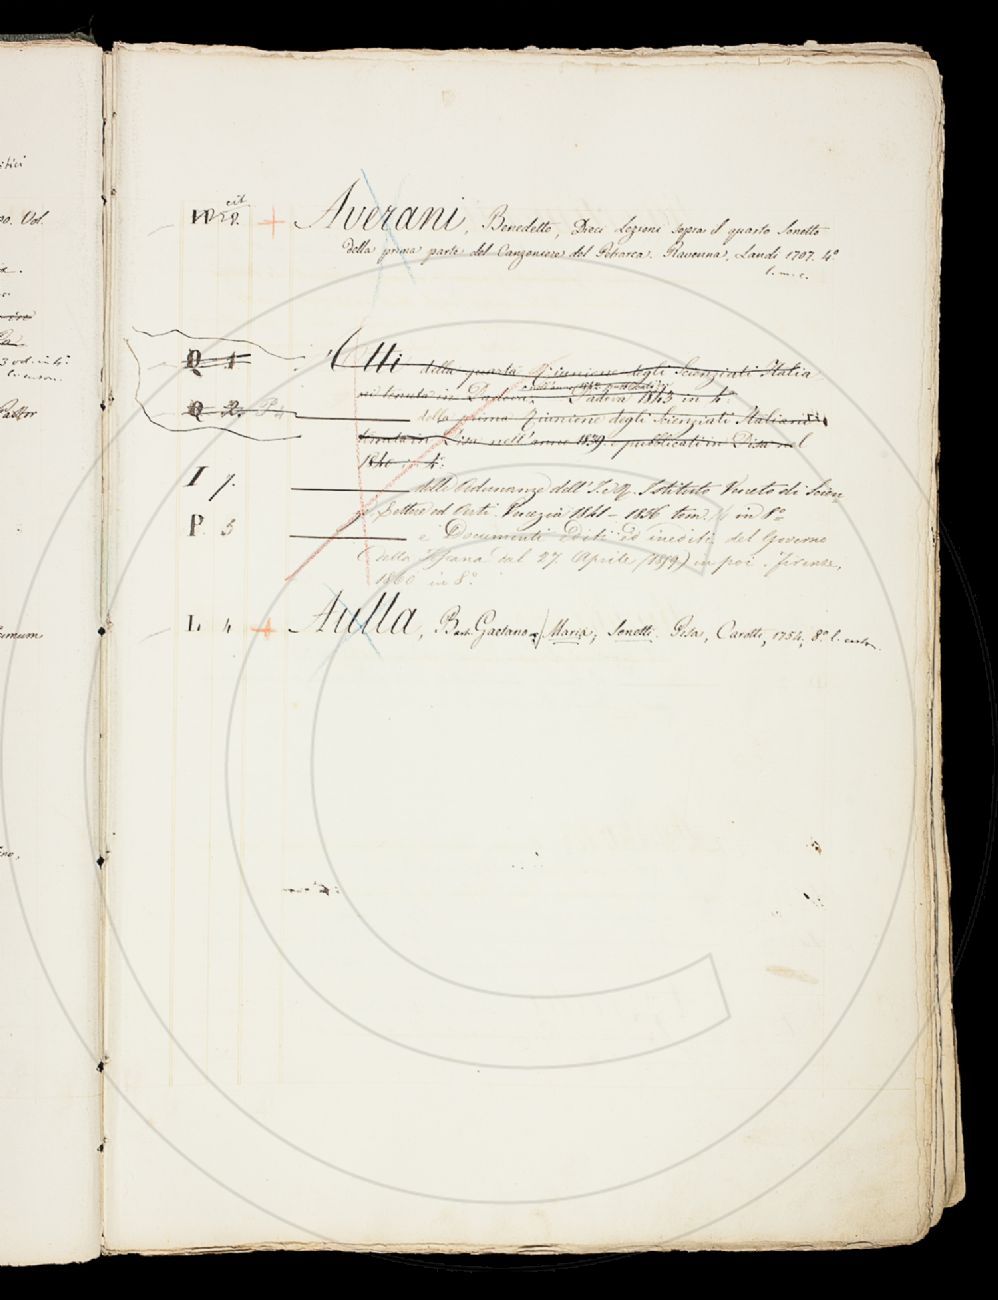 cit.
+ Averani, Benedetto, Dieci Lezioni sopra il quarto Sonetto
della prima parte del Canzoniere del Petrarca. Ravenna, Landi 1707. 4º
l. m. c.
Q 1 Atti della quarta Riunione degli Scienziati Italia
ni tenuta in Padova. Padova 1843 in 4º.
Q 2. P 4 ——— della prima Riunione degli Scienziati Italiani
tenuta in Pisa nell'anno 1839. pubblicati in Pisa nel
1840 in 4º.
I 7. ——— delle Adunanze dell'I. e R. Istituto Veneto di Scien
ze Lettere ed Arti. Venezia 1841 - 1846 tom. in 8º
P. 5 ——— e Documenti editi ed inediti del Governo
della Toscana dal 27. Aprile (1859) in poi. Firenze,
1860 in 8º.
L. 4 + Aulla, Gaetano Maria, Sonetti. Pisa, Carotti, 1754, 8º